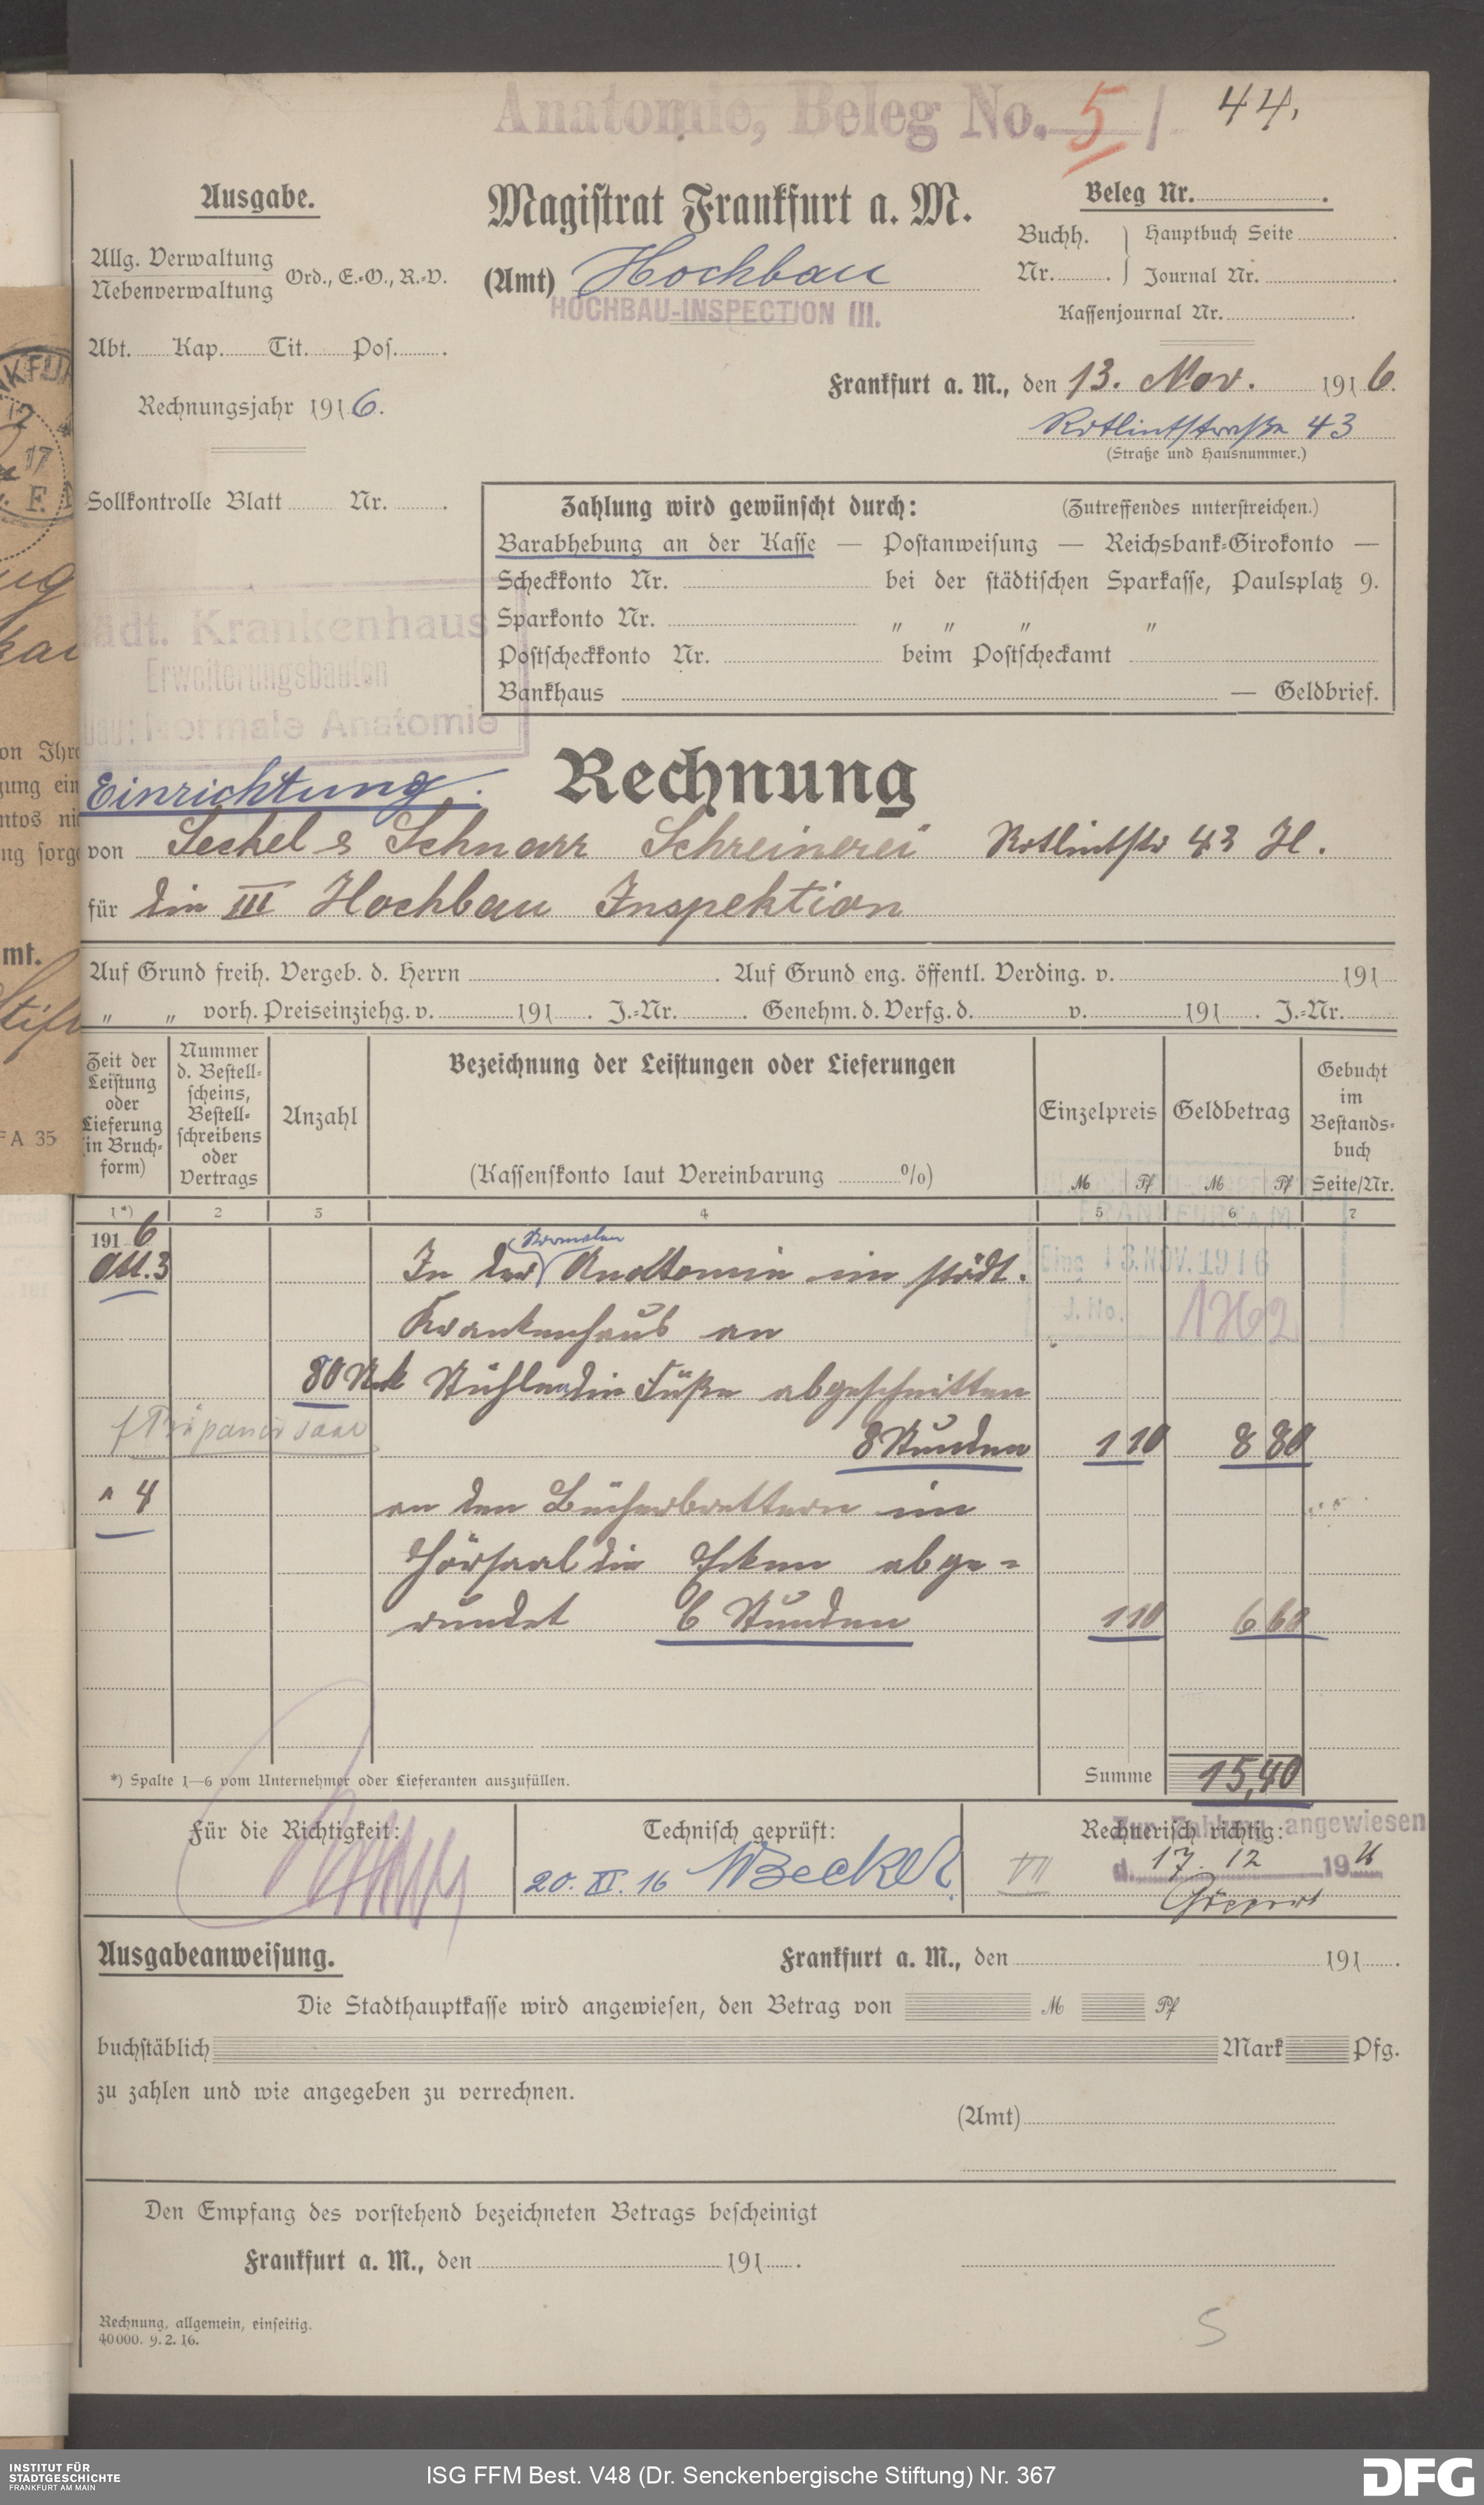 Anatomie, Beleg No. 5 / 44.
Ausgabe.
Magistrat Frankfurt a. M.
Beleg Nr. .
Allg. Verwaltung
Nebenverwaltung
Ord., E.-O., R.-V.
(Amt) Hochbau
HOCHBAU-INSPECTION III.
Buchh. Nr. .
Hauptbuch Seite .
Journal Nr. .
Kassenjournal Nr. .
Abt. Kap. Tit. Pos. .
Frankfurt a. M., den 13. Nov. 1916.
Rechnungsjahr 1916.
Rotlintstraße 43
(Straße und Hausnummer.)
Sollkontrolle Blatt Nr. .
Zahlung wird gewünscht durch: (Zutreffendes unterstreichen.)
Barabhebung an der Kasse — Postanweisung — Reichsbank-Girokonto —
Scheckkonto Nr. bei der städtischen Sparkasse, Paulsplatz 9.
Sparkonto Nr. " " " "
Postscheckkonto Nr. beim Postscheckamt
Bankhaus — Geldbrief.
Städt. Krankenhaus
Erweiterungsbauten
bau: Normale Anatomie
Einrichtung.
Rechnung
von Sechel & Schnarr Schreinerei Rotlintstr 43 H.
für die III Hochbau Inspektion
Auf Grund freih. Vergeb. d. Herrn . Auf Grund eng. öffentl. Verding. v. 191
" " vorh. Preiseinziehg. v. 191 . J.-Nr. . Genehm. d. Verfg. d. v. 191 . J.-Nr.
Zeit der Leistung oder Lieferung (in Bruchform)
Nummer d. Bestellscheins, Bestellschreibens oder Vertrags
Anzahl
Bezeichnung der Leistungen oder Lieferungen
(Kassenskonto laut Vereinbarung %)
Einzelpreis
M Pf
Geldbetrag
M Pf
Gebucht im Bestandsbuch
Seite/Nr.
1*) 2 3 4 5 6 7
FRANKFURT A. M.
Eing. 13. NOV. 1916
J. No. 1762
1916
Okt. 3 In der Normalen Anattomie im städt.
Krankenhaus an
80 Stck Stühlen die Füße abgeschnitten
f Präpariersaal
8 Stunden 1 10 8 80
" 4 an den Bücherbrettern im
Hörsaal die Ecken abge=
rundet 6 Stunden 1 10 6 60
*) Spalte 1—6 vom Unternehmer oder Lieferanten auszufüllen.
Summe 15,40
Für die Richtigkeit:
Technisch geprüft:
20. XI. 16 Becker
Rechnerisch richtig:
VII
Zur Zahlung angewiesen
d. 17. 12 19 16
Ausgabeanweisung.
Frankfurt a. M., den 191 .
Die Stadthauptkasse wird angewiesen, den Betrag von M Pf
buchstäblich Mark Pfg.
zu zahlen und wie angegeben zu verrechnen.
(Amt)
Den Empfang des vorstehend bezeichneten Betrags bescheinigt
Frankfurt a. M., den 191 .
Rechnung, allgemein, einseitig.
40000. 9. 2. 16.
5
INSTITUT FÜR
STADTGESCHICHTE
FRANKFURT AM MAIN
ISG FFM Best. V48 (Dr. Senckenbergische Stiftung) Nr. 367
DFG